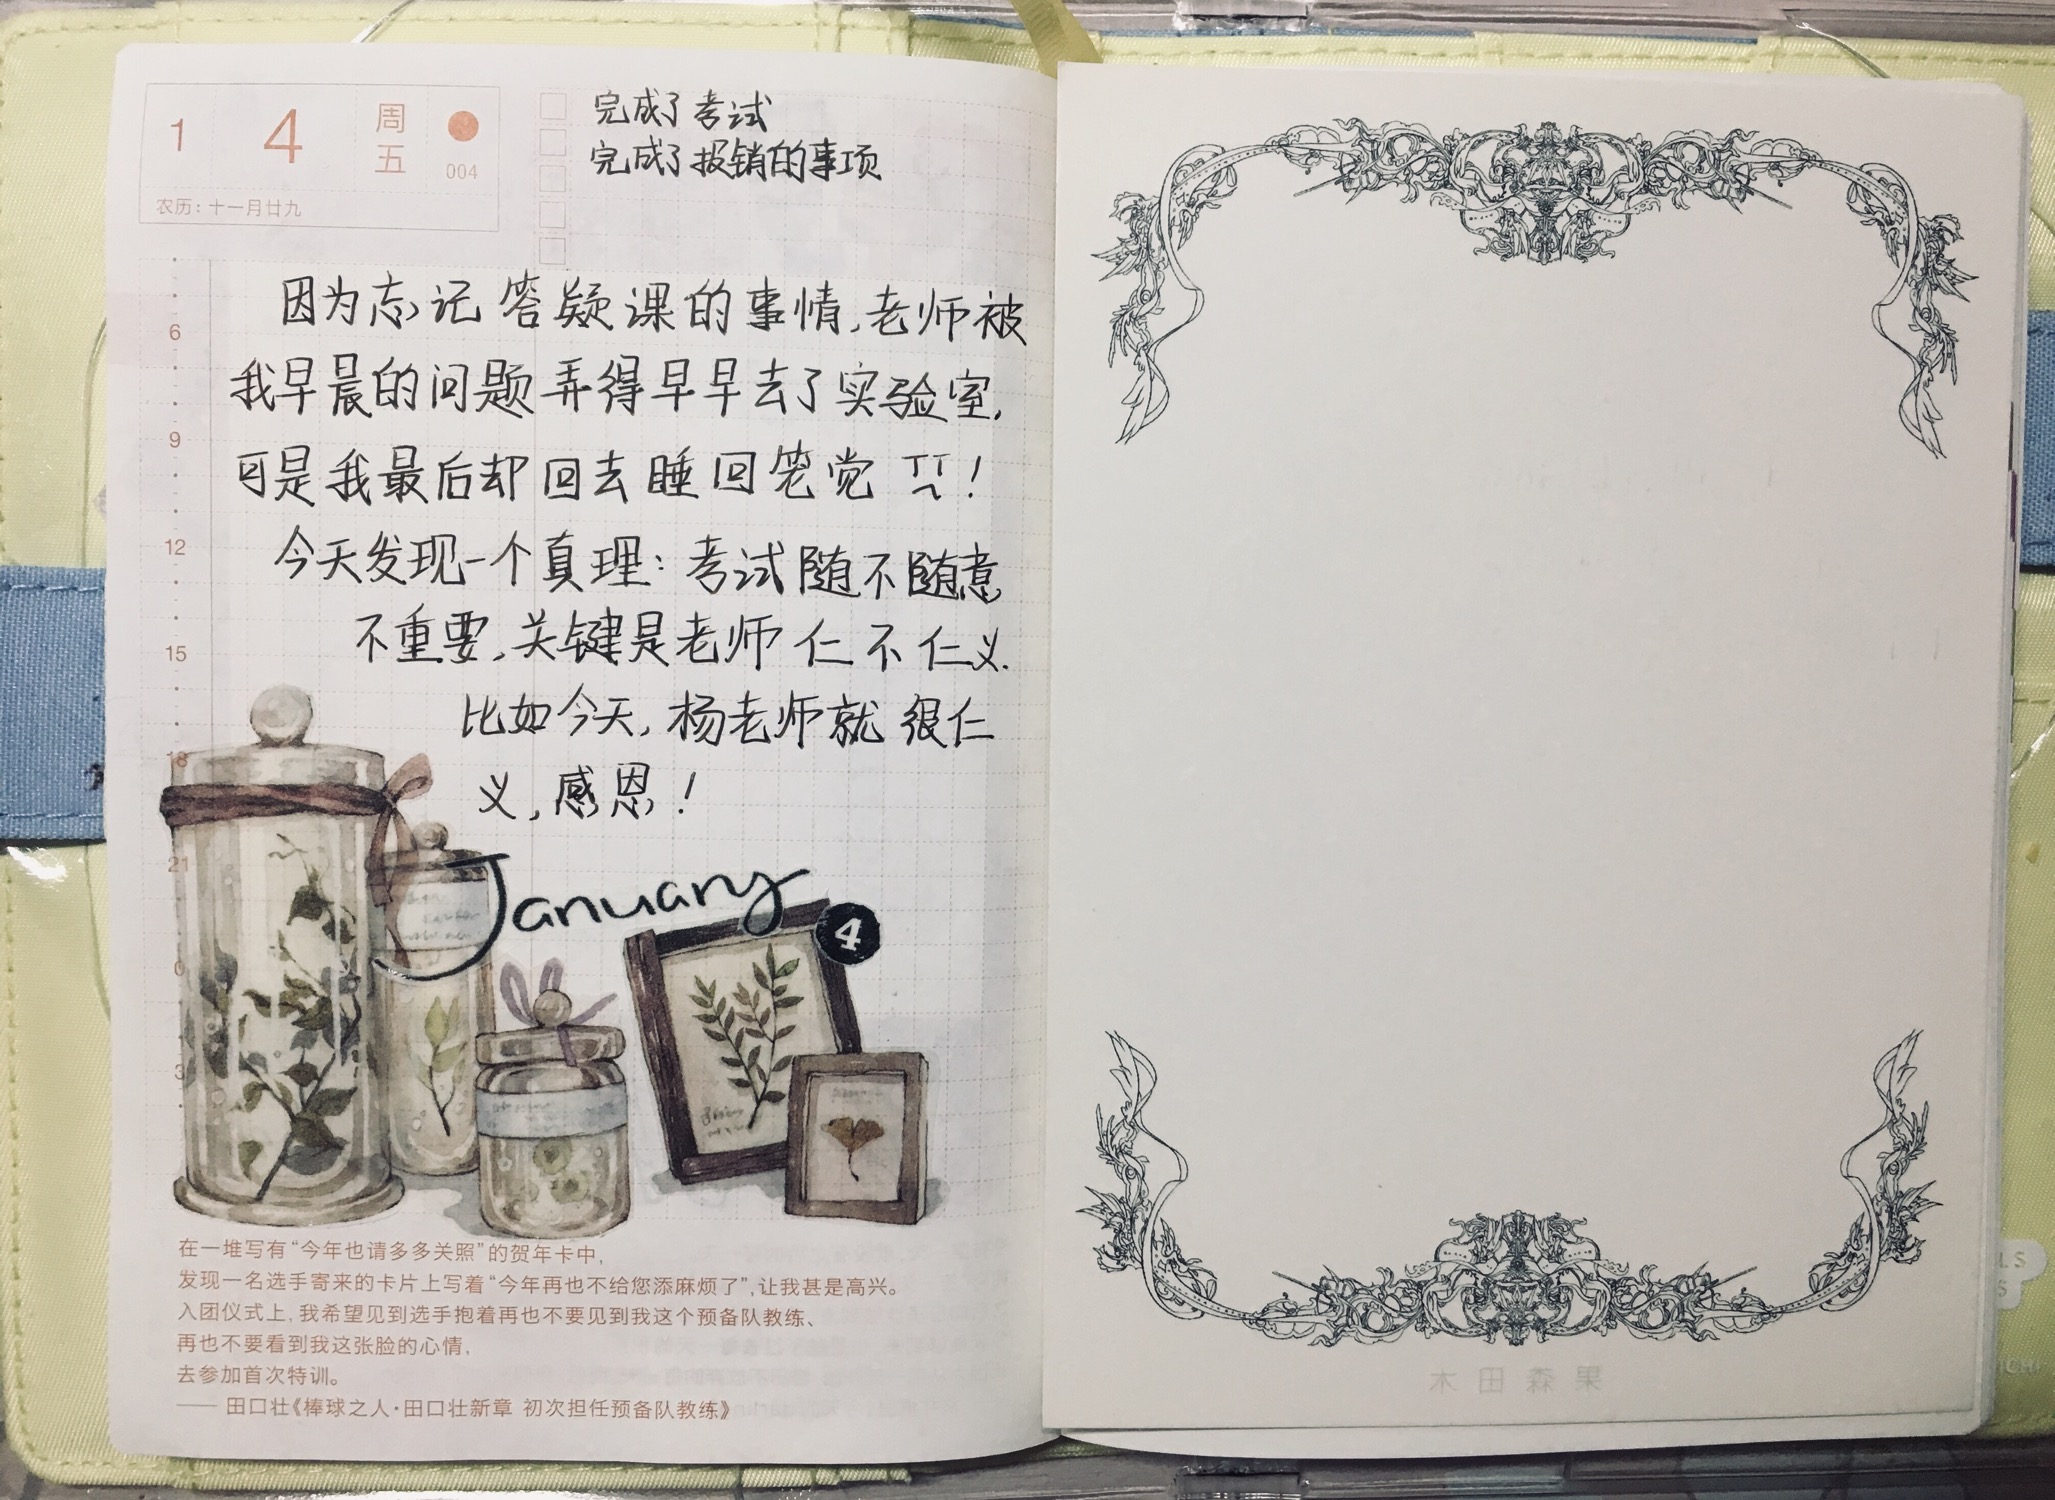 1 4 周五
004
农历：十一月廿九
完成了考试
完成了报销的事项
因为忘记答疑课的事情，老师被
我早晨的问题弄得早早去了实验室，
可是我最后却回去睡回笼觉 ！
今天发现一个真理：考试随不随意
不重要，关键是老师仁不仁义．
比如今天，杨老师就很仁
义，感恩！
6
9
12
15
18
21
0
3
January
4
在一堆写有“今年也请多多关照”的贺年卡中，
发现一名选手寄来的卡片上写着“今年再也不给您添麻烦了”，让我甚是高兴。
入团仪式上，我希望见到选手抱着再也不要见到我这个预备队教练、
再也不要看到我这张脸的心情，
去参加首次特训。
—— 田口壮《棒球之人·田口壮新章 初次担任预备队教练》
木田森果